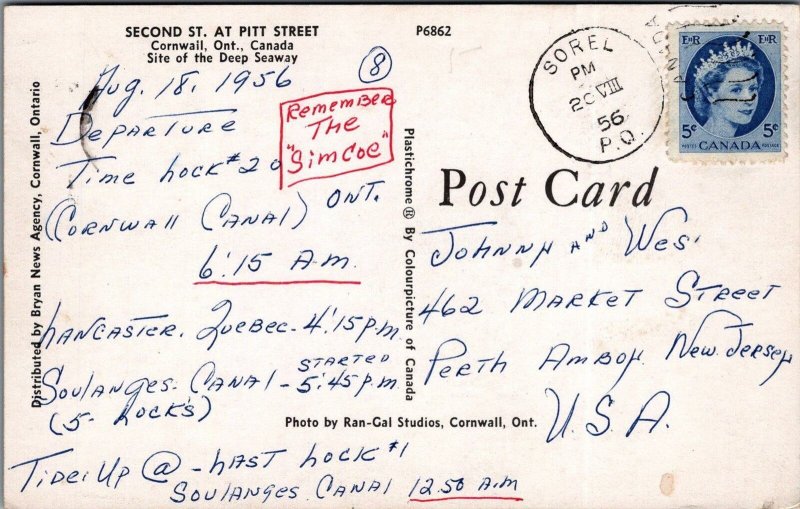 SECOND ST. AT PITT STREET
Cornwall, Ont., Canada
Site of the Deep Seaway
P6862
Aug. 18, 1956
8
Departure
Time Lock #20
(Cornwall Canal) Ont.
6:15 A.M.
Remember
The
"Simcoe"
Lancaster. Quebec - 4:15 p.m.
Started
Soulanges. Canal - 5:45 p.m.
(5 - Locks)
Tide. Up @ - Last Lock #1
Soulanges Canal 12.50 a.m
Distributed by Bryan News Agency, Cornwall, Ontario
Plastichrome ® By Colourpicture of Canada
Photo by Ran-Gal Studios, Cornwall, Ont.
SOREL
PM
20 VIII
56
P.Q.
CANADA
EIIR EIIR
5c 5c
POSTES POSTAGE
CANADA
Post Card
Johnny and Wes.
462 Market Street
Perth Amboy, New. Jersey
U.S.A.